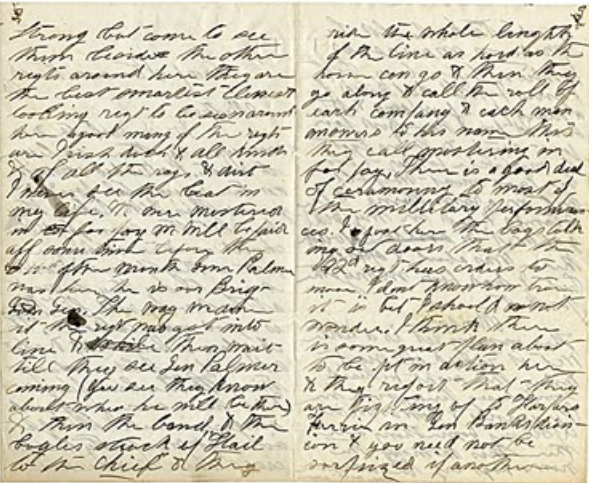 strong but come to see
them beside the other
regts around here they are
the best smartest cleanest
looking regt to be seen around
here a good many of the regts
are Irish dutch & all kinds
& of all the rags & dirt
I never see the beat in
my life. We were mustered
in for pay We will be paid
off some time before the
of the month Gen Palmer
was here he is our Brig
Gen. The way
it the regt was got into
line & then wait
till they see Gen Palmer
coming (You see they know
about when he will be there)
& then the band, & the
bugles struck up "Hail
to the Chief" & they
3
ride the whole lenghth
of the line as hard as the
horses can go & then they
go along & call the roll of
each company & each man
answers to his name this
they call mustering in
for pay. There is a good deal
of ceremony to most of
the millitary performan-
ces. I just hear the boys talk
ing out doors that the
22d regt has orders to
move I dont know how true
it is but I should not
wonder. I think there
is some great plan about
to be pt in action here
& they report that they
are fighting up to Harpers
Ferry in Gen Banks divis-
ion & you need not be
surprized if another